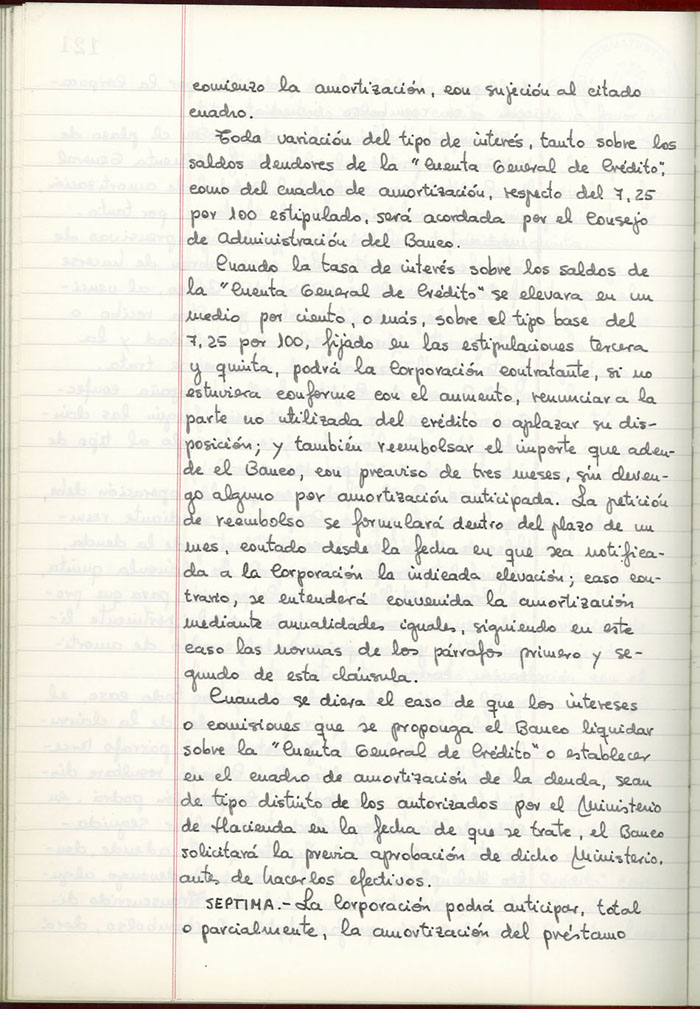 comienzo la amortización, con sujeción al citado
cuadro.
Toda variación del tipo de interés, tanto sobre los
saldos deudores de la "Cuenta General de Crédito",
como del cuadro de amortización, respecto del 7,25
por 100 estipulado, será acordada por el Consejo
de Administración del Banco.
Cuando la tasa de interés sobre los saldos de
la "Cuenta General de Crédito" se elevara en un
medio por ciento, o más, sobre el tipo base del
7,25 por 100, fijado en las estipulaciones tercera
y quinta, podrá la Corporación contratante, si no
estuviera conforme con el aumento, renunciar a la
parte no utilizada del crédito o aplazar su dis-
posición; y también reembolsar el importe que aden-
de el Banco, con preaviso de tres meses, sin deven-
go alguno por amortización anticipada. La petición
de reembolso se formulará dentro del plazo de un
mes, contado desde la fecha en que sea notifica-
da a la Corporación la indicada elevación; caso con-
trario, se entenderá convenida la amortización
mediante anualidades iguales, siguiendo en este
caso las normas de los párrafos primero y se-
gundo de esta cláusula.
Cuando se diera el caso de que los intereses
o comisiones que se proponga el Banco liquidar
sobre la "Cuenta General de Crédito" o establecer
en el cuadro de amortización de la deuda, sean
de tipo distinto de los autorizados por el Ministerio
de Hacienda en la fecha de que se trate, el Banco
solicitará la previa aprobación de dicho Ministerio,
antes de hacerlos efectivos.
SEPTIMA.- La Corporación podrá anticipar, total
o parcialmente, la amortización del préstamo